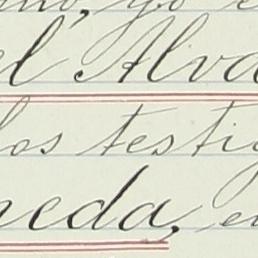 mo, yo e
el Alva
los testig
neda, en